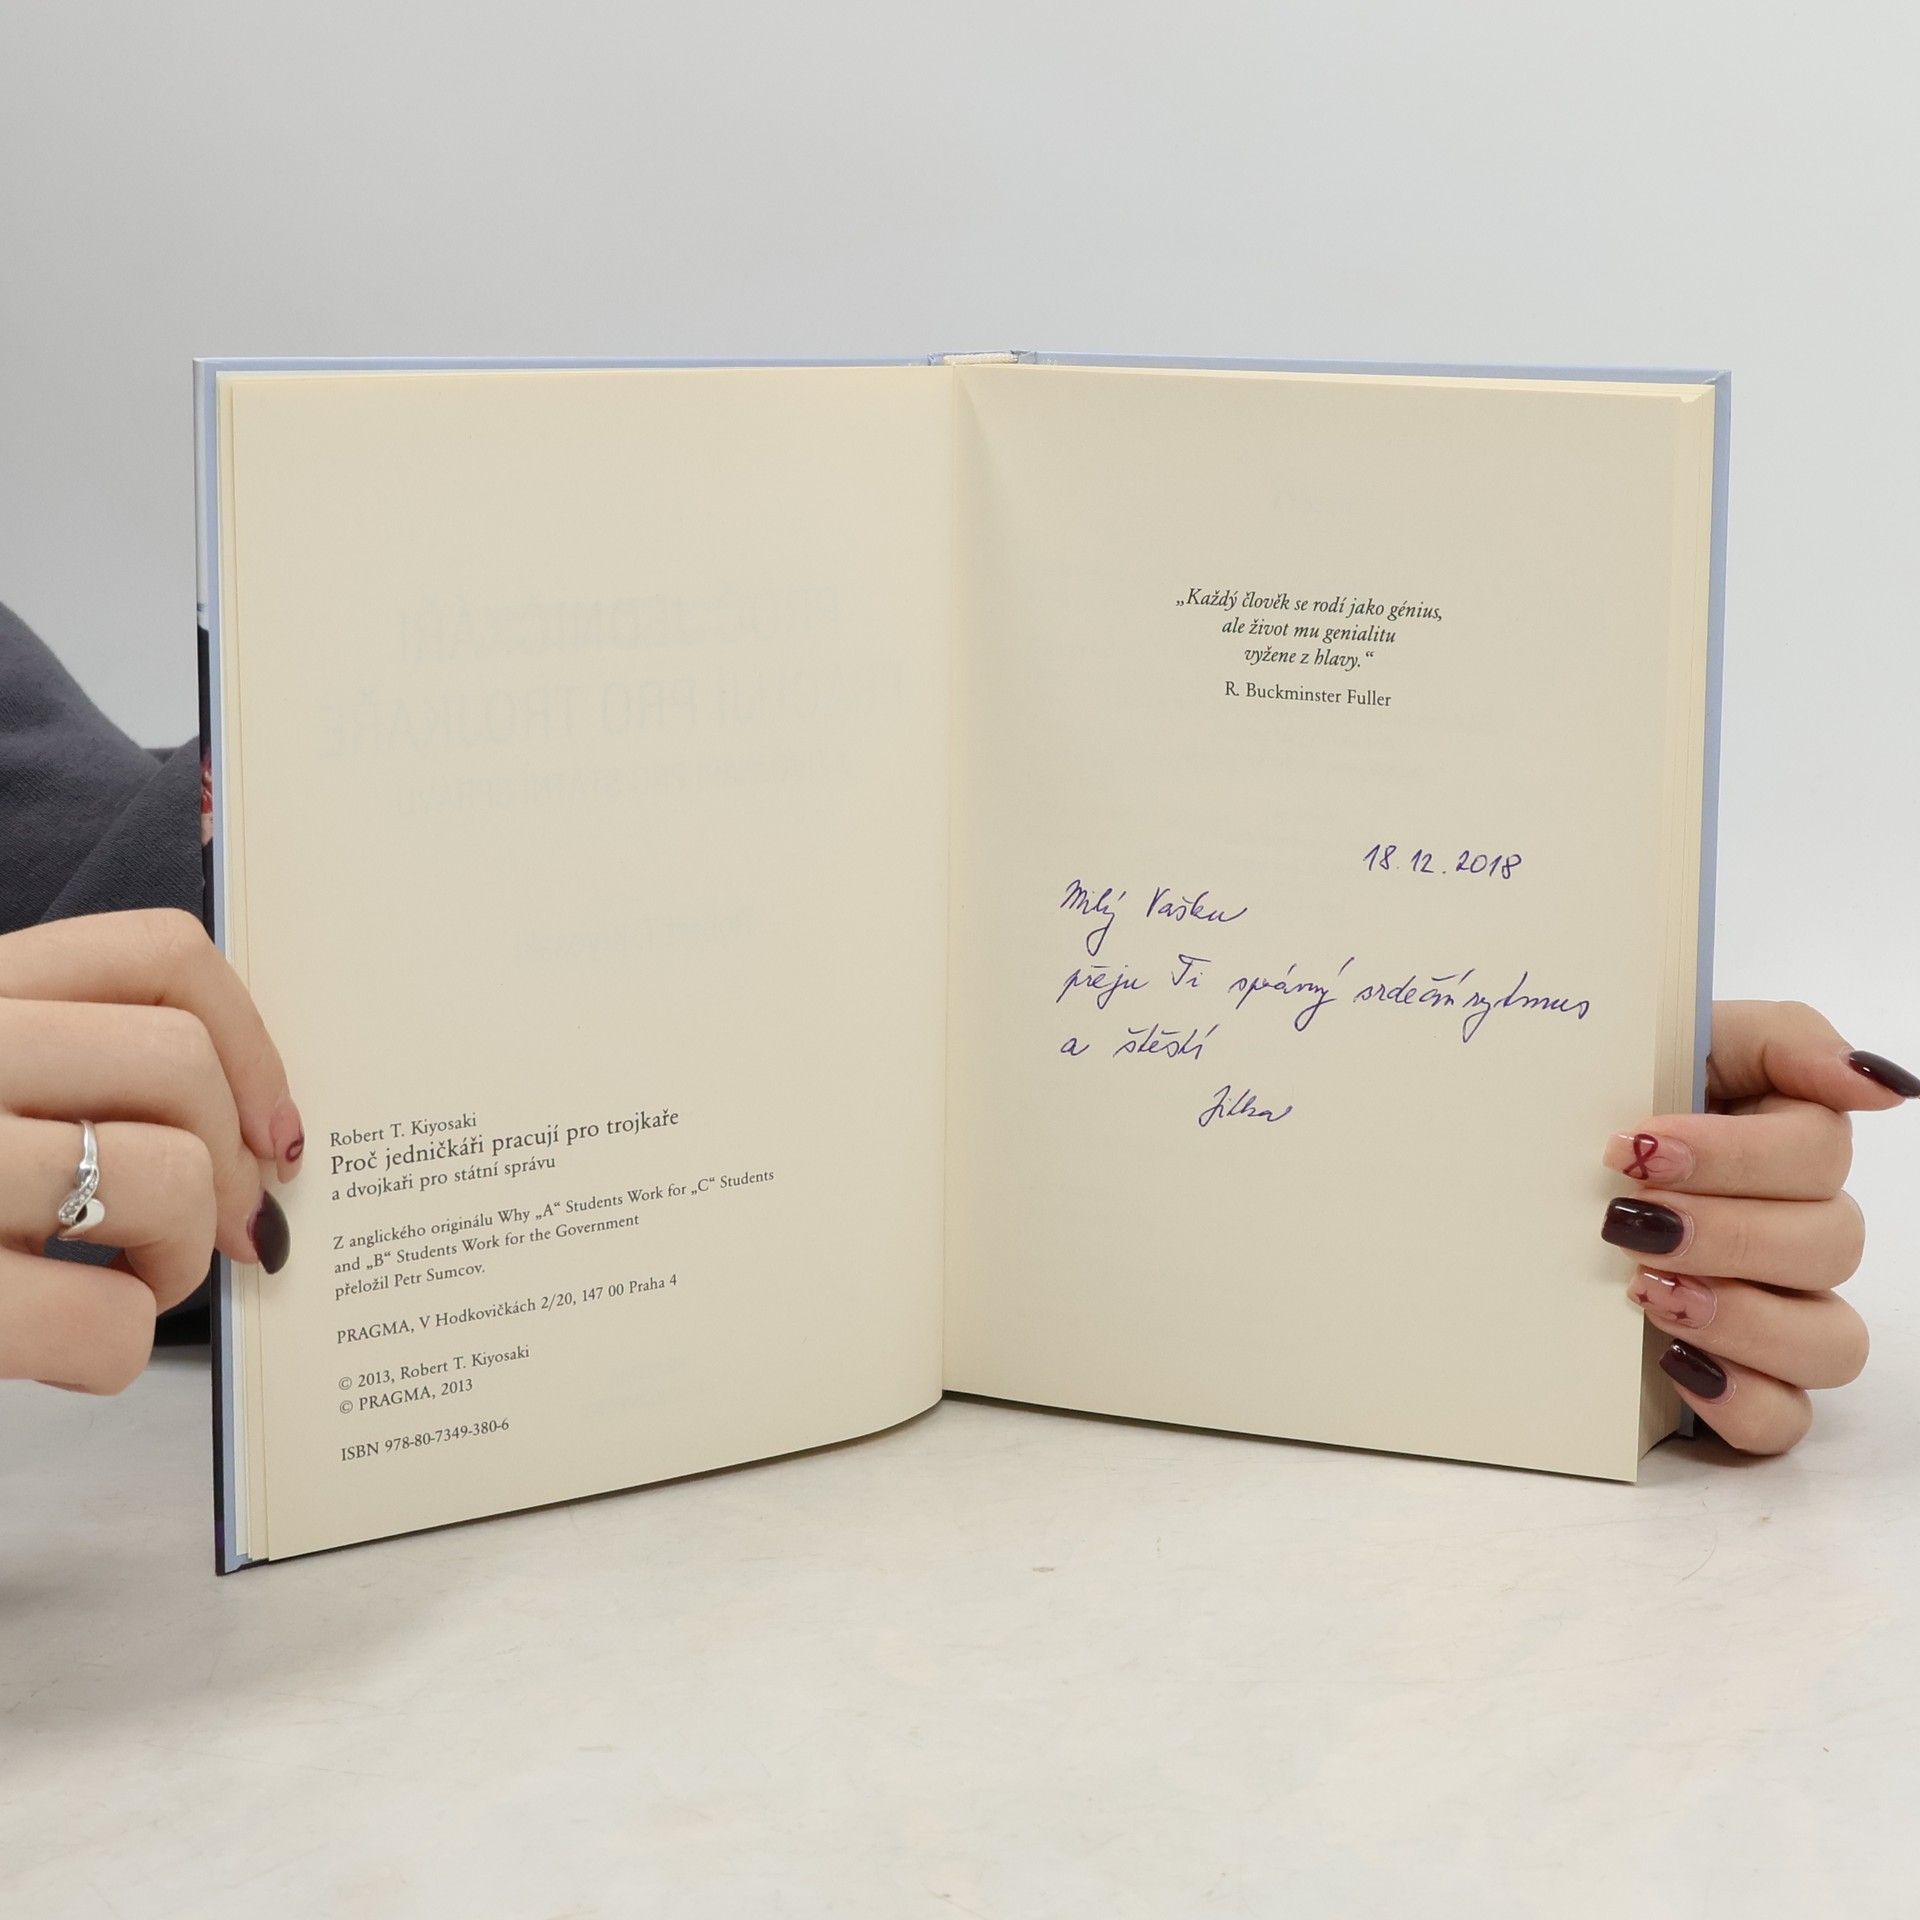 Robert T. Kiyosaki
Proč jedničkáři pracují pro trojkaře
a dvojkaři pro státní správu
Z anglického originálu Why „A“ Students Work for „C“ Students
and „B“ Students Work for the Government
přeložil Petr Sumcov.
PRAGMA, V Hodkovičkách 2/20, 147 00 Praha 4
© 2013, Robert T. Kiyosaki
© PRAGMA, 2013
ISBN 978-80-7349-380-6
„Každý člověk se rodí jako génius,
ale život mu genialitu
vyžene z hlavy.“
R. Buckminster Fuller
18.12.2018
Milý Vašku
přeju Ti správný srdeční rytmus
a štěstí
Jitka